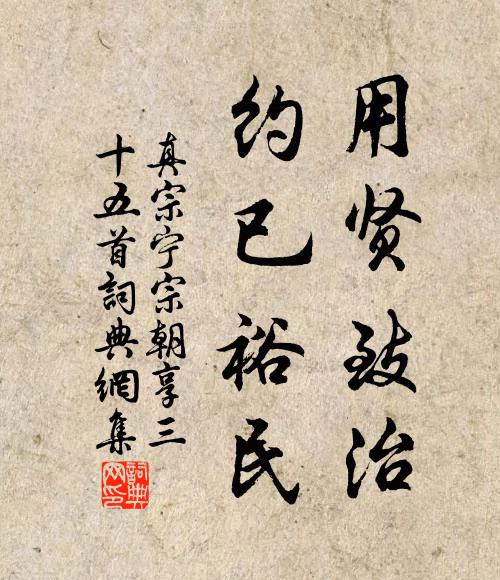 用贤致治
约已裕民
真宗宁宗朝享三
十五首詞典網集
詞典
网印